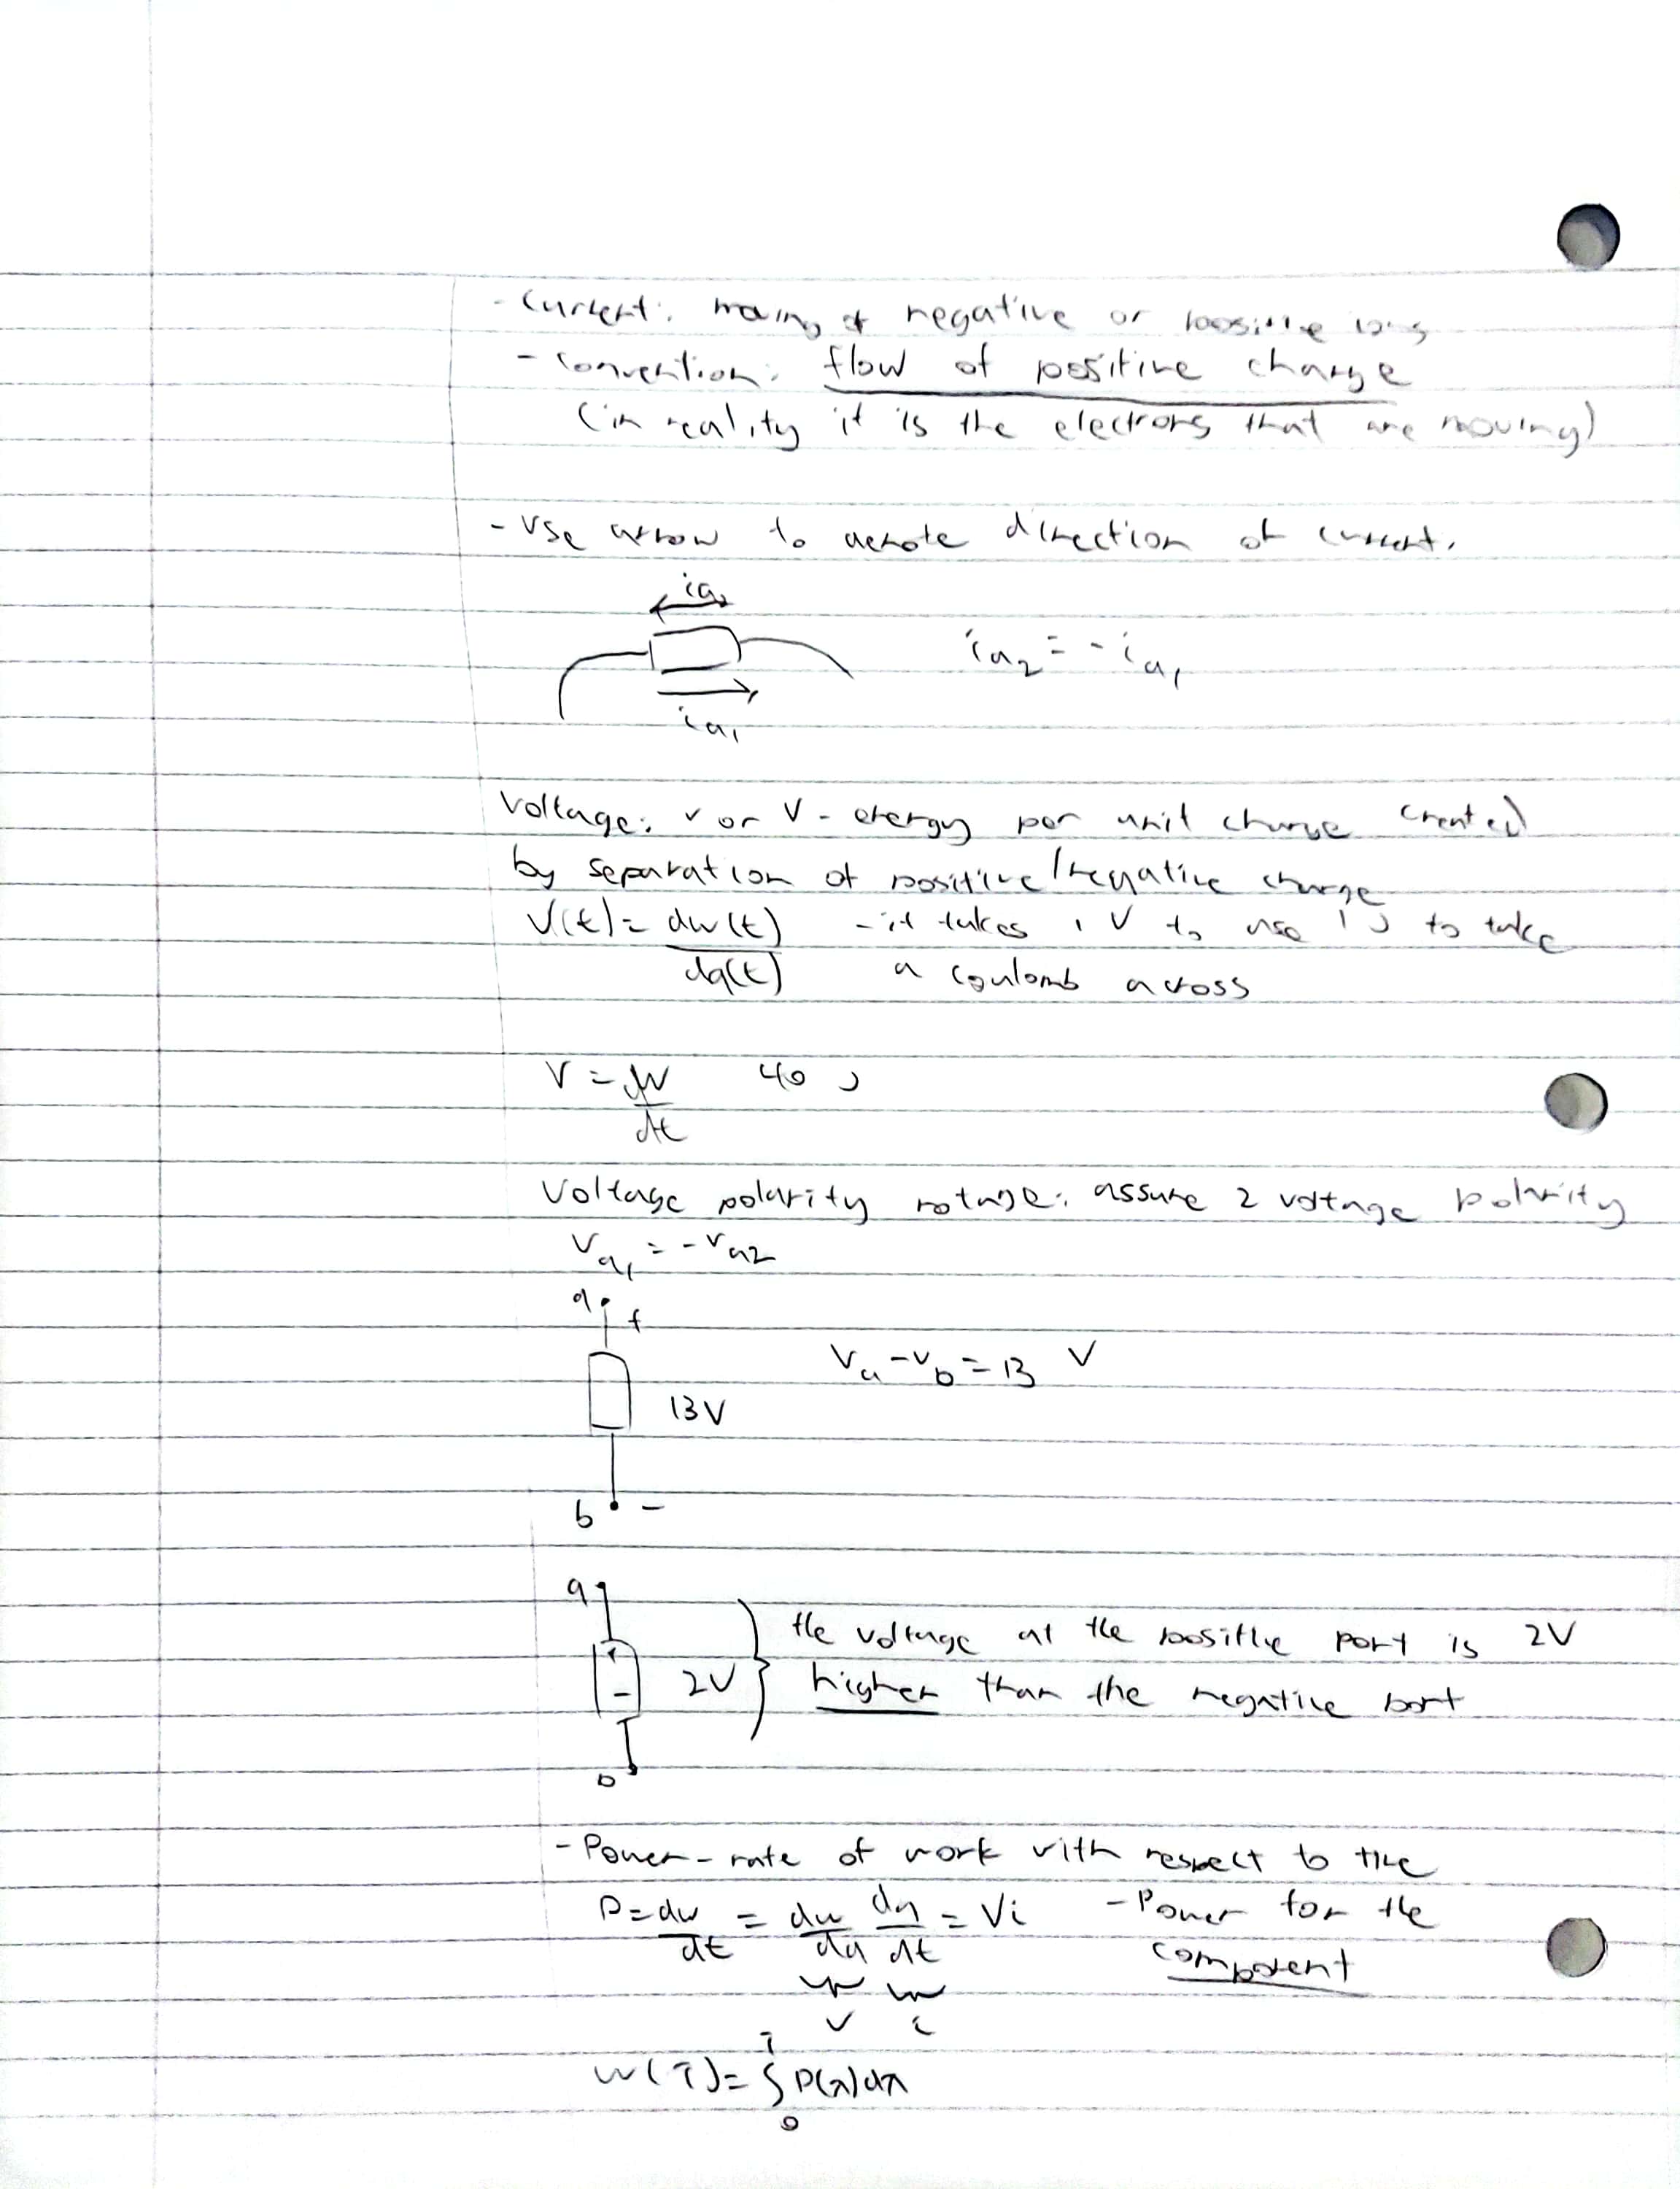 - Current: moving of negative or positive ions
- convention: flow of positive charge
(in reality it is the electrons that are moving)
- Use arrow to denote direction of current.
ia₂
ia₂ = -ia₁
ia₁
Voltage: v or V - energy per unit charge created
by separation of positive/negative charge
V(t) = dw(t)/dq(t) - it takes 1 V to use 1 J to take
a coulomb across
V = dW/dt 40 J
Voltage polarity : assume 2 voltage polarity
Va₁ = -Va2
a +
Va - Vb = 13 V
13V
b -
a
the voltage at the positive port is 2V
+ - 2V higher than the negative port
b
- Power - rate of work with respect to time
P = dw/dt = dw/dq dq/dt = Vi - Power for the
component
v i
w(T) = ∫₀ᵀ P(λ)dλ